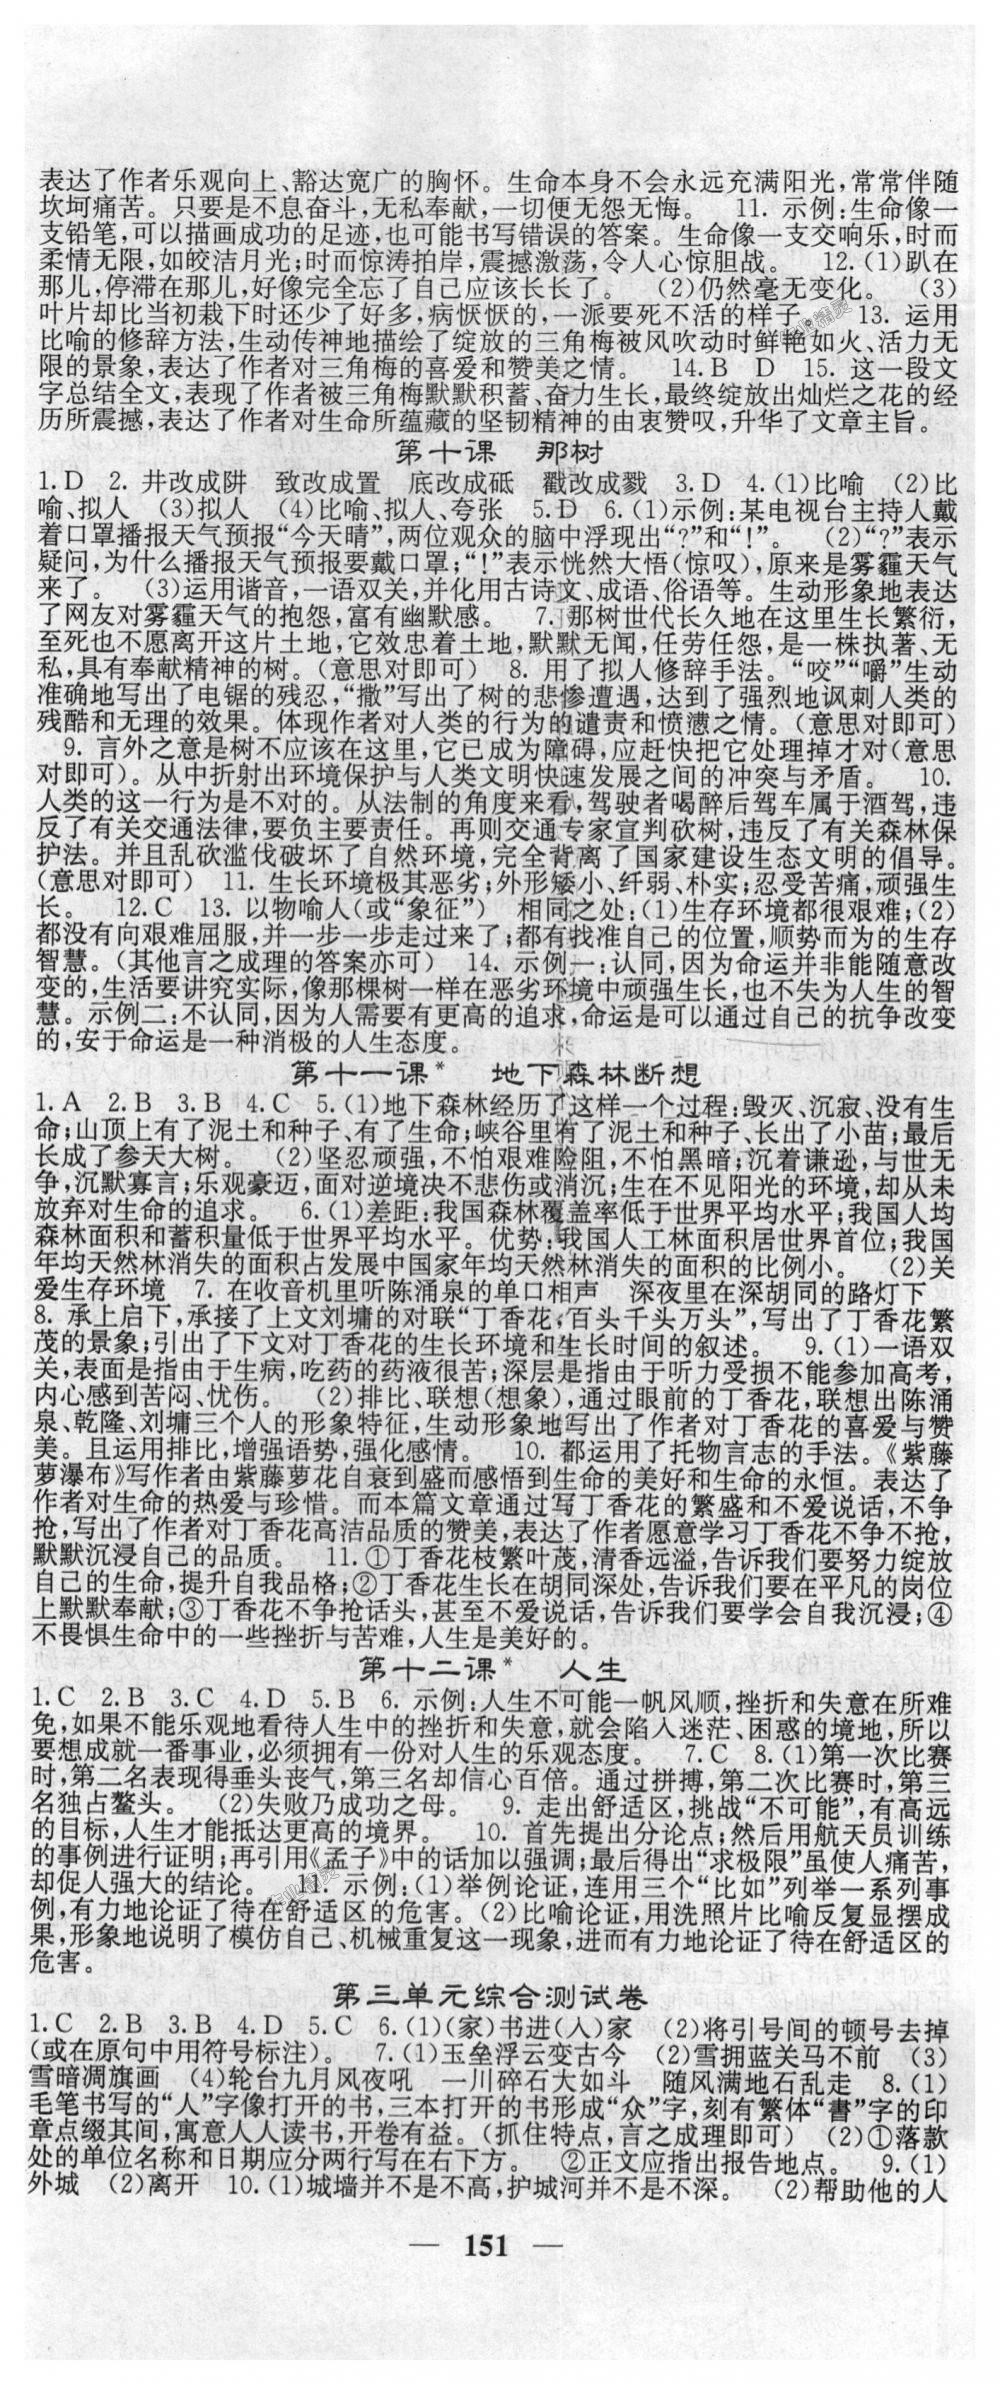 表达了作者乐观向上、豁达宽广的胸怀。生命本身不会永远充满阳光，常常伴随
坎坷痛苦。只要是不息奋斗，无私奉献，一切便无怨无悔。　11. 示例：生命像一
支铅笔，可以描画成功的足迹，也可能书写错误的答案。生命像一支交响乐，时而
柔情无限，如皎洁月光；时而惊涛拍岸，震撼激荡，令人心惊胆战。　12.（1）趴在
那儿，停滞在那儿，好像完全忘了自己应该长长了。　（2）仍然毫无变化。　（3）
叶片却比当初栽下时还少了好多，病恹恹的，一派要死不活的样子。　13. 运用
比喻的修辞方法，生动传神地描绘了绽放的三角梅被风吹动时鲜艳如火、活力无
限的景象，表达了作者对三角梅的喜爱和赞美之情。　14. B　D　15. 这一段文
字总结全文，表现了作者被三角梅默默积蓄、奋力生长，最终绽放出灿烂之花的经
历所震撼，表达了作者对生命所蕴藏的坚韧精神的由衷赞叹，升华了文章主旨。
第十课　那树
1. D　2. 井改成阱　致改成置　底改成砥　戳改成戮　3. D　4.（1）比喻　（2）比
喻、拟人　（3）拟人　（4）比喻、拟人、夸张　5. D　6.（1）示例：某电视台主持人戴
着口罩播报天气预报“今天晴”，两位观众的脑中浮现出“？”和“！”。　（2）“？”表示
疑问，为什么播报天气预报要戴口罩；“！”表示恍然大悟（惊叹），原来是雾霾天气
来了。　（3）运用谐音，一语双关，并化用古诗文、成语、俗语等。生动形象地表达
了网友对雾霾天气的抱怨，富有幽默感。　7. 那树世代长久地在这里生长繁衍，
至死也不愿离开这片土地，它效忠着土地，默默无闻，任劳任怨，是一株执著、无
私，具有奉献精神的树。（意思对即可）　8. 用了拟人修辞手法。“咬”“嚼”生动
准确地写出了电锯的残忍，“撒”写出了树的悲惨遭遇，达到了强烈地讽刺人类的
残酷和无理的效果。体现作者对人类的行为的谴责和愤懑之情。（意思对即可）
9. 言外之意是树不应该在这里，它已成为障碍，应赶快把它处理掉才对（意思
对即可）。从中折射出环境保护与人类文明快速发展之间的冲突与矛盾。　10.
人类的这一行为是不对的。从法制的角度来看，驾驶者喝醉后驾车属于酒驾，违
反了有关交通法律，要负主要责任。再则交通专家宣判砍树，违反了有关森林保
护法。并且乱砍滥伐破坏了自然环境，完全背离了国家建设生态文明的倡导。
（意思对即可）　11. 生长环境极其恶劣；外形矮小、纤弱、朴实；忍受苦痛，顽强生
长。　12. C　13. 以物喻人（或“象征”）　相同之处：（1）生存环境都很艰难；（2）
都没有向艰难屈服，并一步一步走过来了；都有找准自己的位置，顺势而为的生存
智慧。（其他言之成理的答案亦可）　14. 示例一：认同，因为命运并非能随意改
变的，生活要讲究实际，像那棵树一样在恶劣环境中顽强生长，也不失为人生的智
慧。示例二：不认同，因为人需要有更高的追求，命运是可以通过自己的抗争改变
的，安于命运是一种消极的人生态度。
第十一课*　地下森林断想
1. A　2. B　3. B　4. C　5.（1）地下森林经历了这样一个过程：毁灭、沉寂、没有生
命；山顶上有了泥土和种子、有了生命；峡谷里有了泥土和种子、长出了小苗；最后
长成了参天大树。　（2）坚忍顽强，不怕艰难险阻，不怕黑暗；沉着谦逊，与世无
争，沉默寡言；乐观豪迈，面对逆境决不悲伤或消沉；生在不见阳光的环境，却从未
放弃对生命的追求。　6.（1）差距：我国森林覆盖率低于世界平均水平；我国人均
森林面积和蓄积量低于世界平均水平。优势：我国人工林面积居世界首位；我国
年均天然林消失的面积占发展中国家年均天然林消失的面积的比例小。　（2）关
爱生存环境　7. 在收音机里听陈涌泉的单口相声　深夜里在深胡同的路灯下
8. 承上启下，承接了上文刘墉的对联“丁香花，百头千头万头”，写出了丁香花繁
茂的景象；引出了下文对丁香花的生长环境和生长时间的叙述。　9.（1）一语双
关，表面是指由于生病，吃药的药液很苦；深层是指由于听力受损不能参加高考，
内心感到苦闷、忧伤。　（2）排比、联想（想象），通过眼前的丁香花，联想出陈涌
泉、乾隆、刘墉三个人的形象特征，生动形象地写出了作者对丁香花的喜爱与赞
美。且运用排比，增强语势，强化感情。　10. 都运用了托物言志的手法。《紫藤
萝瀑布》写作者由紫藤萝花自衰到盛而感悟到生命的美好和生命的永恒。表达了
作者对生命的热爱与珍惜。而本篇文章通过写丁香花的繁盛和不爱说话，不争
抢，写出了作者对丁香花高洁品质的赞美，表达了作者愿意学习丁香花不争不抢，
默默沉浸自己的品质。　11. ①丁香花枝繁叶茂，清香远溢，告诉我们要努力绽放
自己的生命，提升自我品格；②丁香花生长在胡同深处，告诉我们要在平凡的岗位
上默默奉献；③丁香花不争抢话头，甚至不爱说话，告诉我们要学会自我沉浸；④
不畏惧生命中的一些挫折与苦难，人生是美好的。
第十二课*　人生
1. C　2. B　3. C　4. D　5. B　6. 示例：人生不可能一帆风顺，挫折和失意在所难
免，如果不能乐观地看待人生中的挫折和失意，就会陷入迷茫、困惑的境地，所以
要想成就一番事业，必须拥有一份对人生的乐观态度。　7. C　8.（1）第一次比赛
时，第二名表现得垂头丧气，第三名却信心百倍。通过拼搏，第二次比赛时，第三
名独占鳌头。　（2）失败乃成功之母。　9. 走出舒适区，挑战“不可能”，有高远
的目标，人生才能抵达更高的境界。　10. 首先提出分论点；然后用航天员训练
的事例进行证明；再引用《孟子》中的话加以强调；最后得出“求极限”虽使人痛苦，
却促人强大的结论。　11. 示例：（1）举例论证，连用三个“比如”列举一系列事
例，有力地论证了待在舒适区的危害。（2）比喻论证，用洗照片比喻反复显摆成
果，形象地说明了模仿自己、机械重复这一现象，进而有力地论证了待在舒适区的
危害。
第三单元综合测试卷
1. C　2. B　3. B　4. D　5. C　6.（1）（家）书进（人）家　（2）将引号间的顿号去掉
（或在原句中用符号标注）。　7.（1）玉垒浮云变古今　（2）雪拥蓝关马不前　（3）
雪暗凋旗画　（4）轮台九月风夜吼　一川碎石大如斗　随风满地石乱走　8.（1）
毛笔书写的“人”字像打开的书，三本打开的书形成“众”字，刻有繁体“書”字的印
章点缀其间，寓意人人读书，开卷有益。（抓住特点，言之成理即可）　（2）①落款
处的单位名称和日期应分两行写在右下方。　②正文应指出报告地点。　9.（1）
外城　（2）离开　10.（1）城墙并不是不高，护城河并不是不深。　（2）帮助他的人
— 151 —